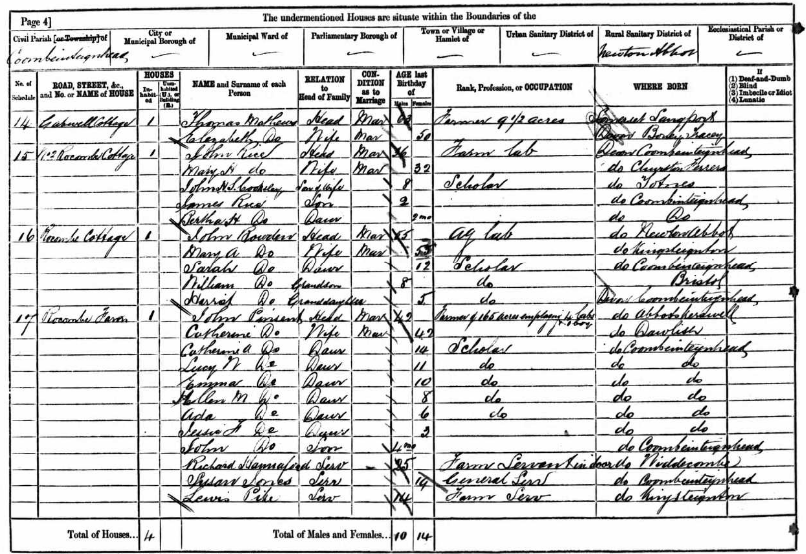 Page 4] The undermentioned Houses are situate within the Boundaries of the
Civil Parish [or Township] of City or Municipal Borough of Municipal Ward of Parliamentary Borough of Town or Village or Hamlet of Urban Sanitary District of Rural Sanitary District of Ecclesiastical Parish or District of
Coombeinteignhead Newton Abbot
No. of Schedule ROAD, STREET, &c., and No. or NAME of HOUSE HOUSES Inhabited Uninhabited (U.), or Building (B.) NAME and Surname of each Person RELATION to Head of Family CONDITION as to Marriage AGE last Birthday of Males Females Rank, Profession, or OCCUPATION WHERE BORN If (1) Deaf-and-Dumb (2) Blind (3) Imbecile or Idiot (4) Lunatic
14 Cottage 1 Thomas Mathews Head Mar 63 Farmer 9 1/2 acres Somerset Langport
Elizabeth Do Wife Mar 50 Devon Bovey Tracey
15 No 2 Rocombe Cottage 1 John Rice Head Mar Farm lab Devon Coombeinteignhead
Mary H do Wife Mar 32 do Churston Ferrers
John Son of Wife 8 Scholar do Totnes
James Rice Son 2 do Coombeinteignhead
Bertha H Do Daur 2 mo do Do
16 Rocombe Cottage 1 John Rowden Head Mar 55 Ag lab do Newton Abbot
Mary A Do Wife Mar 55 do Kingsteignton
Sarah Do Daur 12 Scholar do Coombeinteignhead
William Do Grandson 8 do Bristol
Harriet Do Granddaughter 5 do Devon Coombeinteignhead
17 Rocombe Farm 1 John Pinsent Head Mar 42 Farmer of 165 acres employing 4 labs & 1 boy do Abbotskerswell
Catherine Do Wife Mar 42 do Dawlish
Catherine A Do Daur 14 Scholar do Coombeinteignhead
Lucy N Do Daur 11 do do do
Emma Do Daur 10 do do do
Hellen M Do Daur 8 do do do
Ada Do Daur 6 do do do
Jessie F Do Daur 3 do do
John Do Son 4 mo do Coombeinteignhead
Richard Hannaford Serv - 25 Farm Servant indoor do Widdecombe
Susan Jones Serv 19 General Serv do Coombeinteignhead
Lewis Pike Serv 14 Farm Serv do Kingsteignton
Total of Houses... 4 Total of Males and Females... 10 14